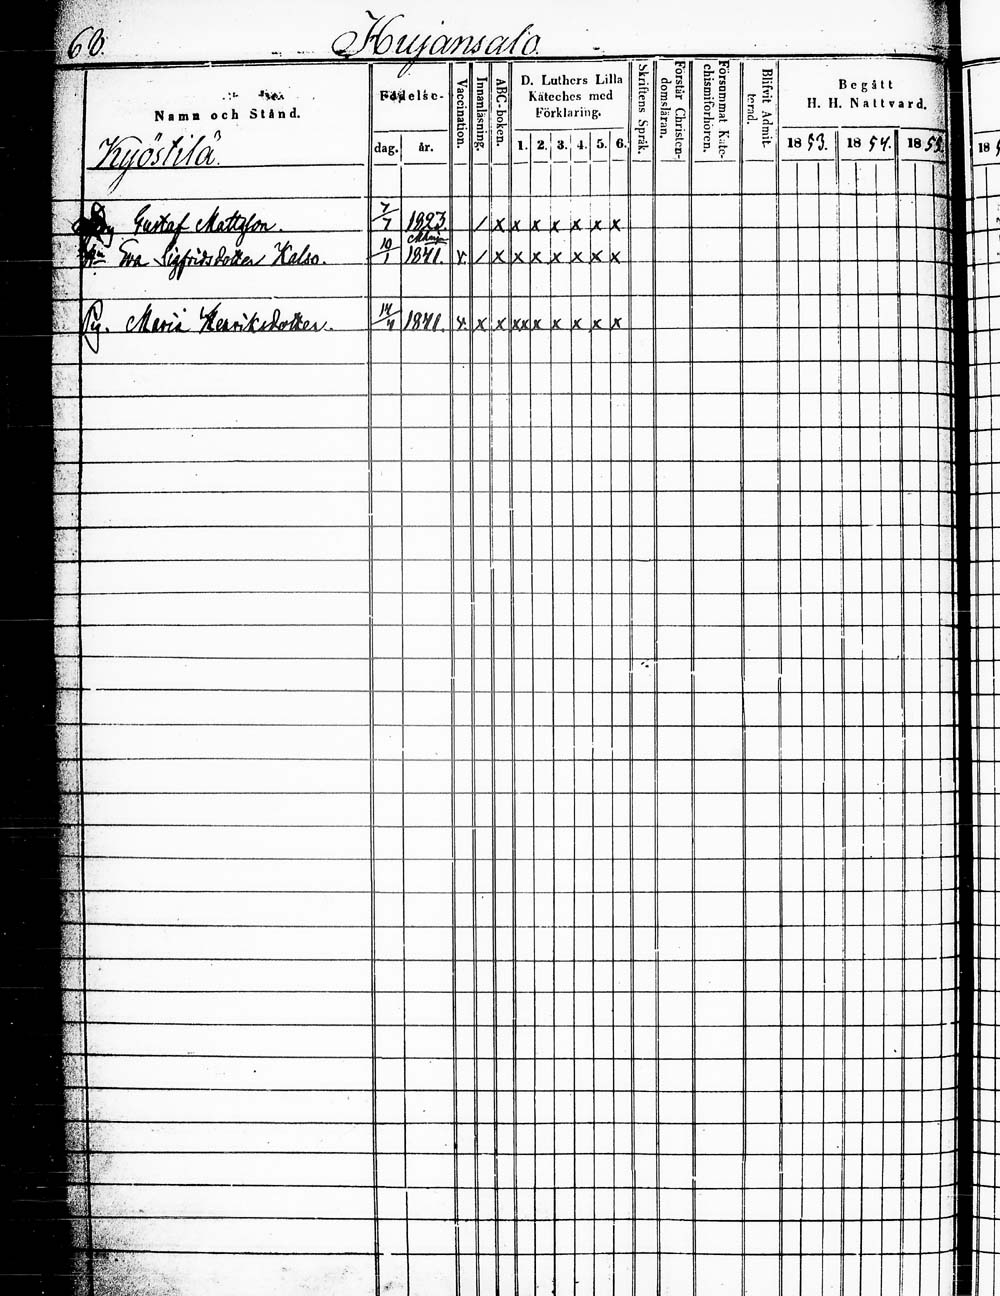 60. Hujansalo.
Namn och Stånd.
Födelse-
dag. år.
Vaccination.
Innanläsning.
ABC-boken.
D. Luthers Lilla
Kateches med
Förklaring.
1. 2. 3. 4. 5. 6.
Skriftens Språk.
Förstår Christen-
domsläran.
Försummat Kate-
chismiförhören.
Blifvit Admit-
terad.
Begått
H. H. Nattvard.
1853. 1854. 1855.
18
Kyöstilä.
Gustaf Mattsson. 7/7 1823. / x x x x x x x
Eva Sigfridsdotter Kalso. 10/1 1841. v. / x x x x x x x
Pig. Maria Henriksdotter. 14/4 1841. v. x x xx x x x x x